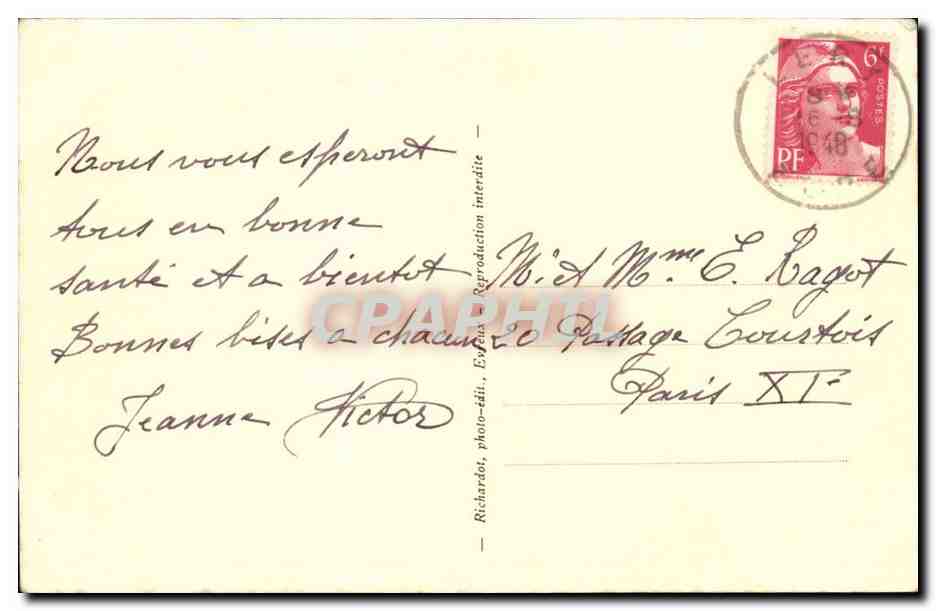 Nous vous esperont
tous en bonne
santé et a bientot
Bonnes bises a chacun
Jeanne Victor
— Richardot, photo-édit., Evreux - Reproduction interdite —
6F
POSTES
RF
1948
M. et Mme E. Ragot
20 Passage Courtois
Paris XIe
CPAPHIL